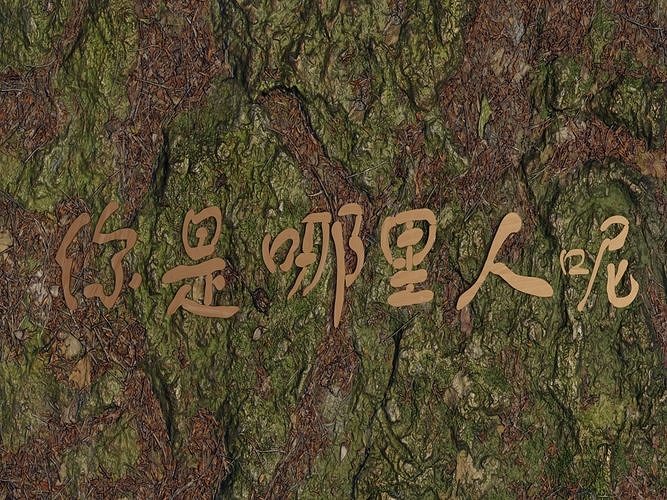 你是哪里人呢